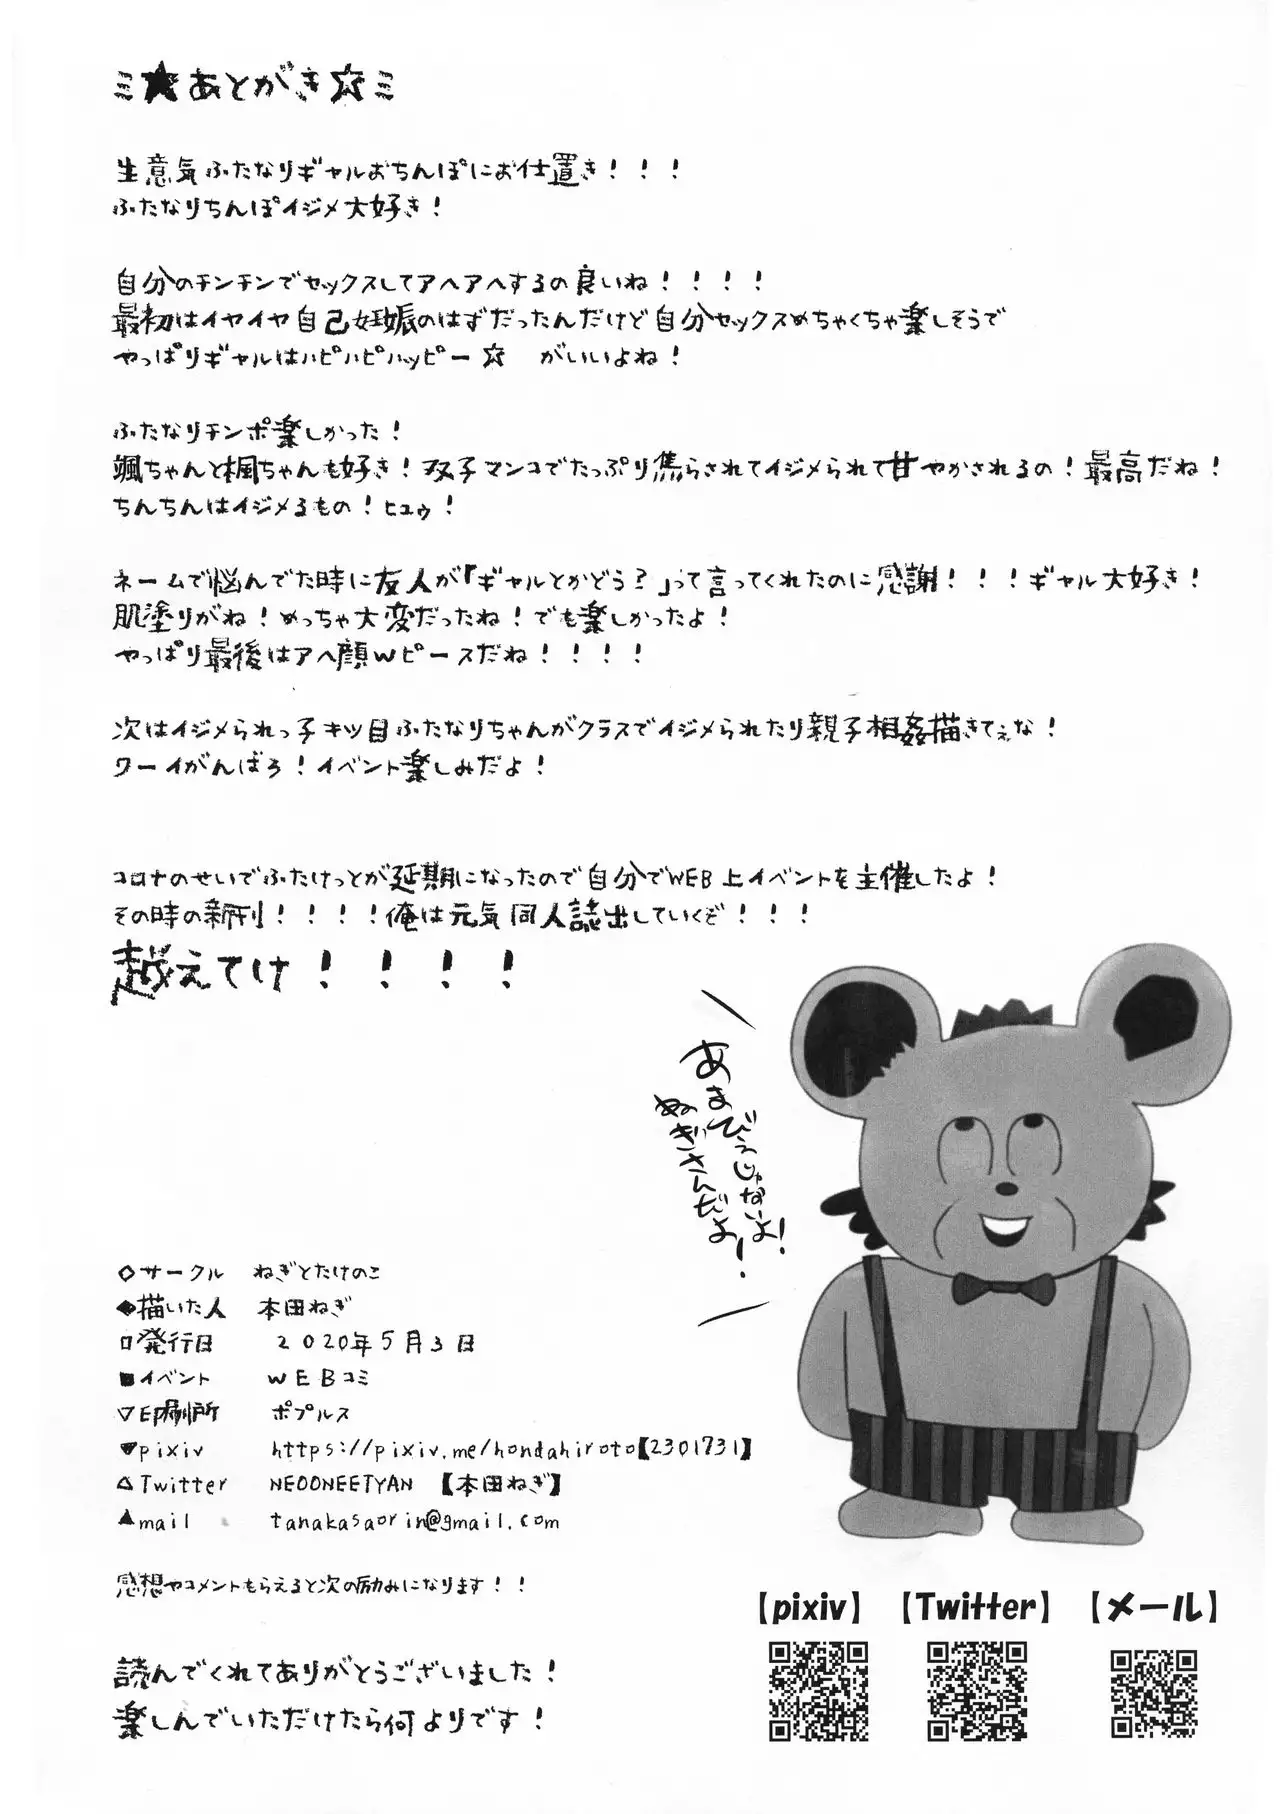 ミ★あとがき☆ミ
生意気ふたなりギャルおちんぽにお仕置き！！！
ふたなりちんぽイジメ大好き！
自分のチンチンでセックスしてアヘアヘするの良いね！！！！
最初はイヤイヤ自己妊娠のはずだったんだけど自分セックスめちゃくちゃ楽しそうで
やっぱりギャルはハピハピハッピー☆ がいいよね！
ふたなりチンポ楽しかった！
颯ちゃんと楓ちゃんも好き！双子マンコでたっぷり焦らされてイジメられて甘やかされるの！最高だね！
ちんちんはイジメるもの！ヒュゥ！
ネームで悩んでた時に友人が「ギャルとかどう？」って言ってくれたのに感謝！！！ギャル大好き！
肌塗りがね！めっちゃ大変だったね！でも楽しかったよ！
やっぱり最後はアヘ顔Wピースだね！！！！
次はイジメられっ子キツ目ふたなりちゃんがクラスでイジメられたり親子相姦描きてぇな！
ワーイがんばろ！イベント楽しみだよ！
コロナのせいでふたけっとが延期になったので自分でWEB上イベントを主催したよ！
その時の新刊！！！！俺は元気同人誌出していくぞ！！！
越えてけ！！！！
あまびえじゃないよ！
ぬぎさんだよー！
◇サークル ねぎとたけのこ
◆描いた人 本田ねぎ
□発行日 2020年5月3日
■イベント WEBコミ
▽印刷所 ポプルス
▼pixiv https://pixiv.me/hondahiroto【2301731】
△Twitter NEOONEETYAN 【本田ねぎ】
▲mail tanakasaorin@gmail.com
感想やコメントもらえると次の励みになります！！
読んでくれてありがとうございました！
楽しんでいただけたら何よりです！
【pixiv】 【Twitter】 【メール】